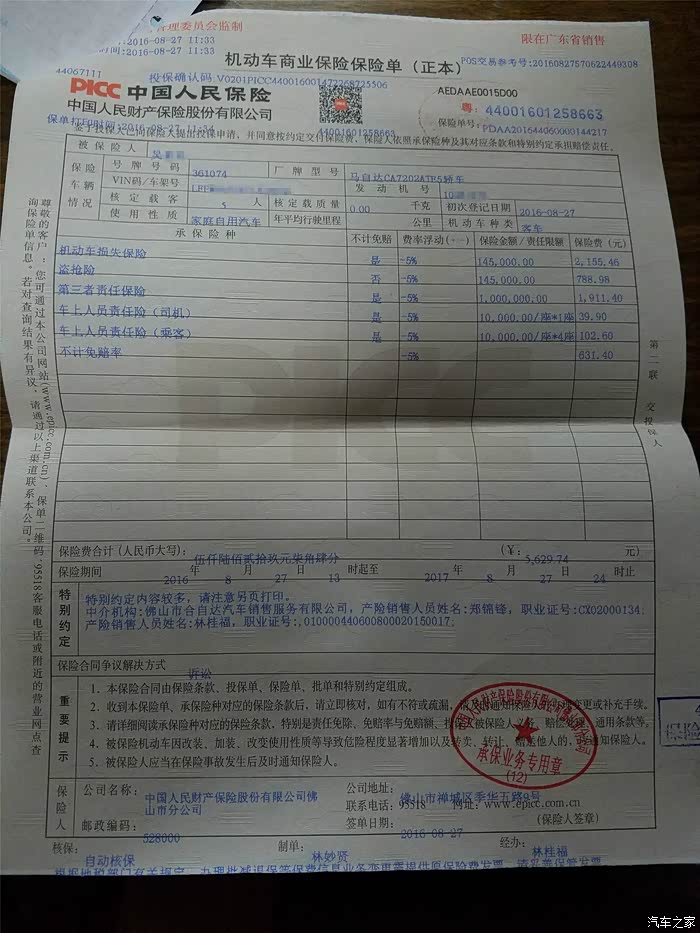 管理委员会监制
限在广东省销售
:2016-08-27 11:33
时间:2016-08-27 11:33
机动车商业保险保险单（正本）
POS交易参考号:20160827570622449308
44067111
投保确认码:V0201PICC440016001472268725506
PICC 中国人民保险
AEDAAE0015D00
中国人民财产保险股份有限公司
粤: 44001601258663
保单打印时间:2016-08-27 11:34
44001601258663
保险单号: PDAA201644060000144217
鉴于投保人已向保险人提出投保申请，并同意按约定交付保险费，保险人依照承保险种及其对应条款和特别约定承担赔偿责任。
被保险人 吴
保险车辆情况
号牌号码 361074 厂牌型号 马自达CA7202ATE5轿车
VIN码/车架号 LFE 发动机号 10
核定载客 5 人 核定载质量 0.00 千克 初次登记日期 2016-08-27
使用性质 家庭自用汽车 年平均行驶里程 公里 机动车种类 客车
承保险种 不计免赔 费率浮动(+-) 保险金额/责任限额 保险费（元）
机动车损失保险 是 -5% 145,000.00 2,155.46
盗抢险 否 -5% 145,000.00 788.98
第三者责任保险 是 -5% 1,000,000.00 1,911.40
车上人员责任险（司机） 是 -5% 10,000.00/座*1座 39.90
车上人员责任险（乘客） 是 -5% 10,000.00/座*4座 102.60
不计免赔率 -5% 631.40
保险费合计(人民币大写): 伍仟陆佰贰拾玖元柒角肆分 (￥: 5,629.74 元)
保险期间 2016 年 8 月 27 日 13 时起至 2017 年 8 月 27 日 24 时止
特别约定
特别约定内容较多，请注意另页打印。
中介机构:佛山市合自达汽车销售服务有限公司，产险销售人员姓名:郑锦锋，职业证号:CX02000134;
产险销售人员姓名:林桂福，职业证号:,01000044060080002015001​7;
保险合同争议解决方式 诉讼
重要提示
1. 本保险合同由保险条款、投保单、保险单、批单和特别约定组成。
2. 收到本保险单、承保险种对应的保险条款后，请立即核对，如有不符或疏漏，请及时通知保险人并办理变更或补充手续。
3. 请详细阅读承保险种对应的保险条款，特别是责任免除、免赔率与免赔额、投保人被保险人义务、赔偿处理、通用条款等。
4. 被保险机动车因改装、加装、改变使用性质等导致危险程度显著增加以及转卖、转让、赠送他人的，应通知保险人。
5. 被保险人应当在保险事故发生后及时通知保险人。
承保业务专用章
(12)
保险人
公司名称: 中国人民财产保险股份有限公司佛山市分公司
公司地址: 佛山市禅城区季华五路9号
联系电话: 95518 网址: www.epicc.com.cn
邮政编码: 528000
签单日期: 2016-08-27 (保险人签章)
核保: 自动核保 制单: 林妙贤 经办: 林桂福
尊敬的客户：您可通过本公司网站(www.epicc.com.cn)、保单二维码、95518客服电话或附近的营业网点查
询保险单信息。若对查询结果有异议，请通过以上渠道联系本公司。
第二联 交投保人
汽车之家